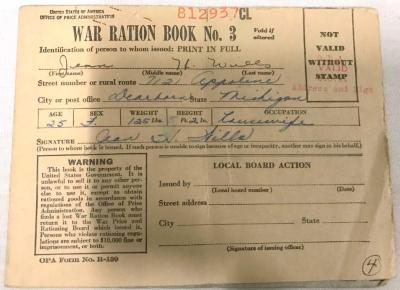 UNITED STATES OF AMERICA
OFFICE OF PRICE ADMINISTRATION
812937 CL
WAR RATION BOOK No. 3
Void if altered
Identification of person to whom issued: PRINT IN FULL
Jean H. Wills
(First name) (Middle name) (Last name)
Street number or rural route 7121 Appoline
City or post office Dearborn State Michigan
AGE SEX WEIGHT HEIGHT OCCUPATION
25 F 125 Lbs. 5 Ft. 2 In. Housewife
SIGNATURE Jean H. Wills
(Person to whom book is issued. If such person is unable to sign because of age or incapacity, another may sign in his behalf.)
NOT
VALID
WITHOUT
STAMP
Address and Sign
WARNING
This book is the property of the
United States Government. It is
unlawful to sell it to any other per-
son, or to use it or permit anyone
else to use it, except to obtain
rationed goods in accordance with
regulations of the Office of Price
Administration. Any person who
finds a lost War Ration Book must
return it to the War Price and
Rationing Board which issued it.
Persons who violate rationing regu-
lations are subject to $10,000 fine or
imprisonment, or both.
LOCAL BOARD ACTION
Issued by
(Local board number) (Date)
Street address
City State
(Signature of issuing officer)
OPA Form No. R-139
4